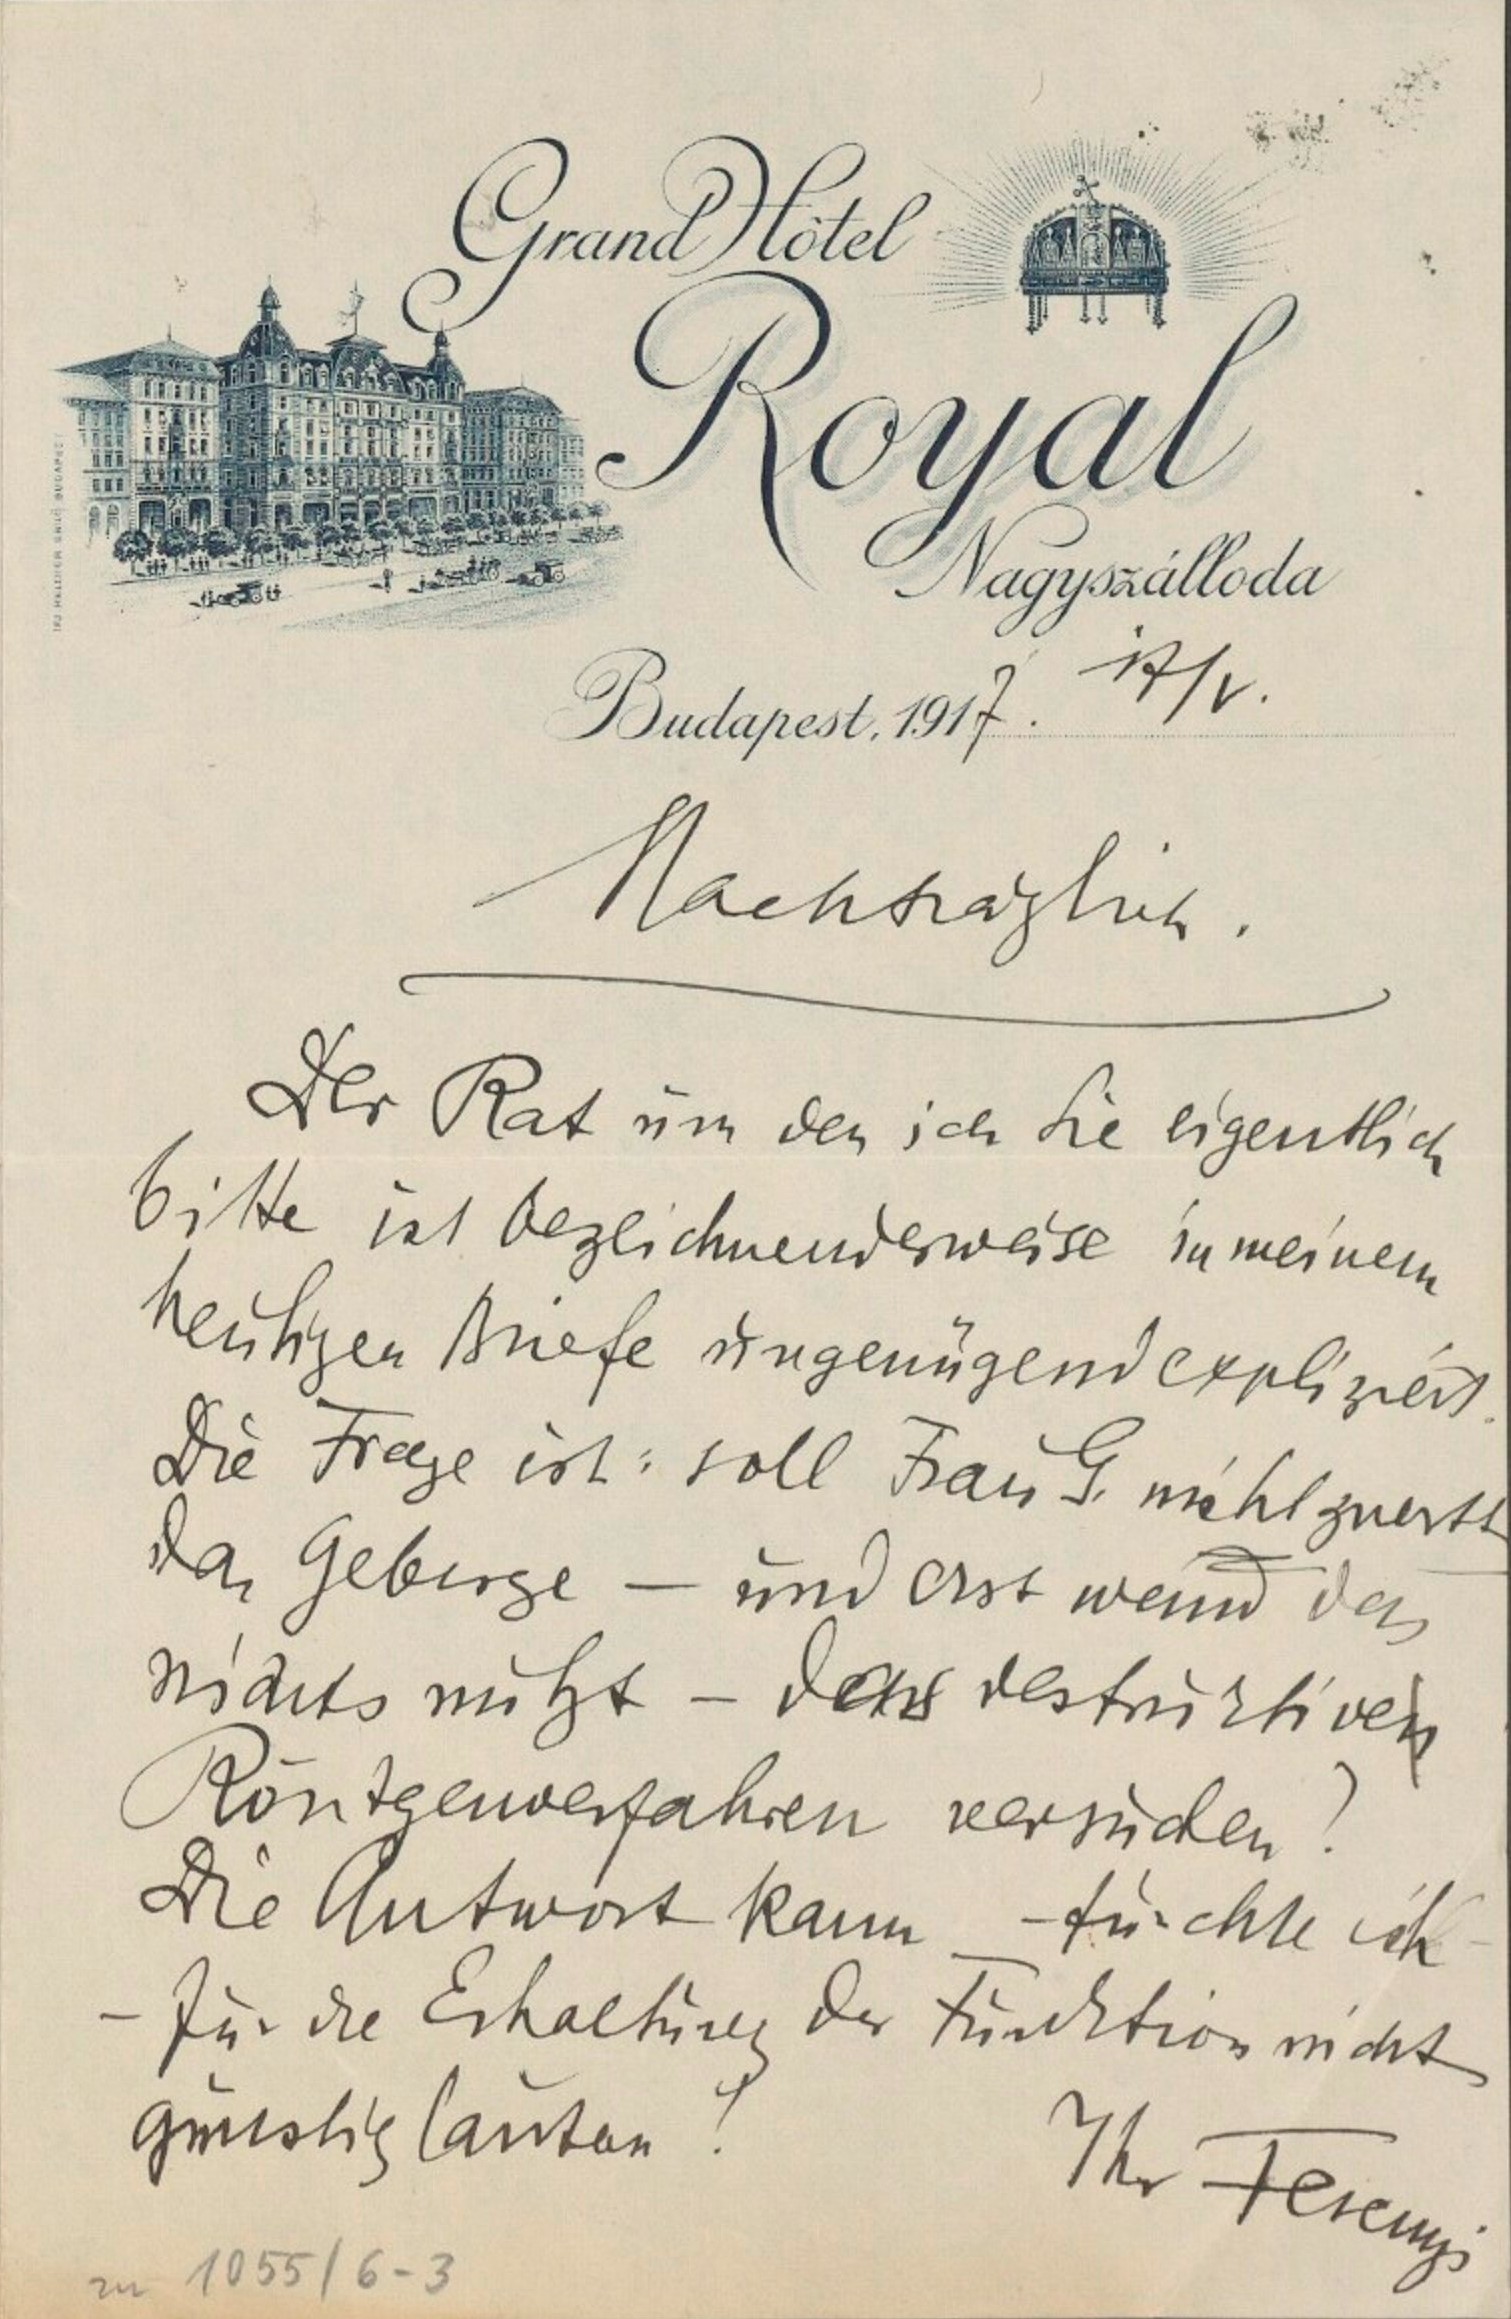 Grand Hôtel
Royal
Nagyszálloda
Budapest, 1917. 17/V.
Nachträglich.
Der Rat um den ich Sie eigentlich
bitte ist bezeichnenderweise in meinem
heutigen Briefe ungenügend expliziert.
Die Frage ist: soll Frau G. nicht zuerst
das Gebirge – und erst wenn das
nichts nützt – das destruktive
Röntgenverfahren versuchen?
Die Antwort kann – fürchte ich –
– für die Erhaltung der Funktion nicht
günstig lauten!
Ihr Ferenczi
zu 1055/6-3